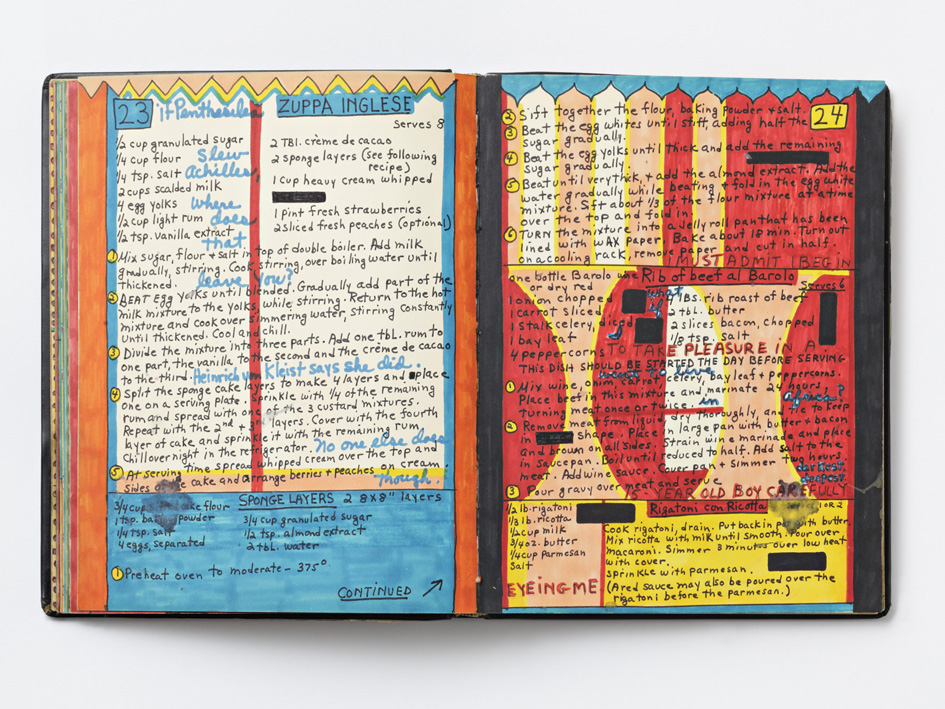 23
it Penthesilea
ZUPPA INGLESE
Serves 8
1/2 cup granulated sugar
1/4 cup flour
1/4 tsp. salt
2 cups scalded milk
4 egg yolks
1/2 cup light rum
1/2 tsp. vanilla extract
slew
achilles,
where
does
that
leave you?
2 TBL. crème de cacao
2 sponge layers (see following
recipe)
1 cup heavy cream whipped
1 pint fresh strawberries
2 sliced fresh peaches (optional)
1 Mix sugar, flour & salt in top of double boiler. Add milk
gradually, stirring. Cook, stirring, over boiling water until
thickened.
2 BEAT egg yolks until blended. Gradually add part of the
milk mixture to the yolks, while stirring. Return to the hot
mixture and cook over simmering water, stirring constantly
until thickened. Cool and chill.
3 Divide the mixture into three parts. Add one tbl. rum to
one part, the vanilla to the second and the crème de cacao
to the third.
Heinrich von Kleist says she did.
4 Split the sponge cake layers to make 4 layers and place
one on a serving plate. Sprinkle with 1/4 of the remaining
rum and spread with one of the 3 custard mixtures.
Repeat with the 2nd & 3rd layers. Cover with the fourth
layer of cake and sprinkle it with the remaining rum.
Chill over night in the refrigerator.
No one else does
though.
5 At serving time spread whipped cream over the top and
sides of the cake and arrange berries + peaches on cream
SPONGE LAYERS 2 8x8" layers
3/4 cup cake flour
1 tsp. baking powder
1/4 tsp. salt
4 eggs, separated
3/4 cup granulated sugar
1/2 tsp. almond extract
2 tbl. water
1 Preheat oven to moderate - 375°
CONTINUED
24
2 Sift together the flour, baking powder & salt.
3 Beat the egg whites until stiff, adding half the
sugar gradually.
4 Beat the egg yolks until thick and add the remaining
sugar gradually.
5 Beat until very thick, & add the almond extract. Add the
water gradually while beating & fold in the egg white
mixture. Sift about 1/3 of the flour mixture at a time
over the top and fold in.
6 TURN the mixture into a jelly roll pan that has been
lined with WAX paper. Bake about 18 min. Turn out
on a cooling rack, remove paper and cut in half.
I MUST ADMIT I BEGIN
Rib of beef al Barolo
Serves 6
one bottle Barolo wine
or dry red
1 onion chopped
1 carrot sliced
1 stalk celery, diced
bay leaf
4 peppercorns
what
if
I
TBS. rib roast of beef
2 tbl. butter
2 slices bacon, chopped
1/8 tsp. salt
TO TAKE PLEASURE IN A
THIS DISH SHOULD BE STARTED THE DAY BEFORE SERVING
want to live
in
africa?
1 Mix wine, onion, carrot, celery, bay leaf & peppercorns.
Place beef in this mixture and marinate 24 hours,
turning meat once or twice.
2 Remove meat from liquid dry thoroughly, and tie to keep
in shape. Place in large pan with butter & bacon
and brown on all sides. Strain wine marinade and place
in saucepan. Boil until reduced to half. Add salt to the
meat. Add wine sauce. Cover pan & simmer two hours.
darkest,
deepest
3 Pour gravy over meat and serve
15-YEAR OLD BOY CAREFULLY
Rigatoni con Ricotta
1 OR 2
1/2 lb. rigatoni
1/3 lb. ricotta
1/2 cup milk
3/4 oz. butter
1/4 cup parmesan
Salt
Cook rigatoni, drain. Put back in pot with butter.
Mix ricotta with milk until smooth. Pour over
macaroni. Simmer 3 minutes over low heat
with cover.
Sprinkle with parmesan.
(A red sauce may also be poured over the
rigatoni before the parmesan.)
EYEING ME